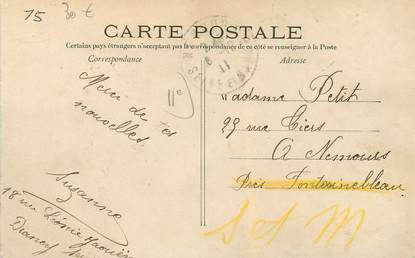 75 30 €
CARTE POSTALE
Certains pays étrangers n'acceptant pas la correspondance de ce côté se renseigner à la Poste
Correspondance
Adresse
Merci de tes
nouvelles.
Suzanne
18 rue
Drancy
11°
Madame Petit
29 rue Tiers
A Nemours
Près Fontainebleau
S et M